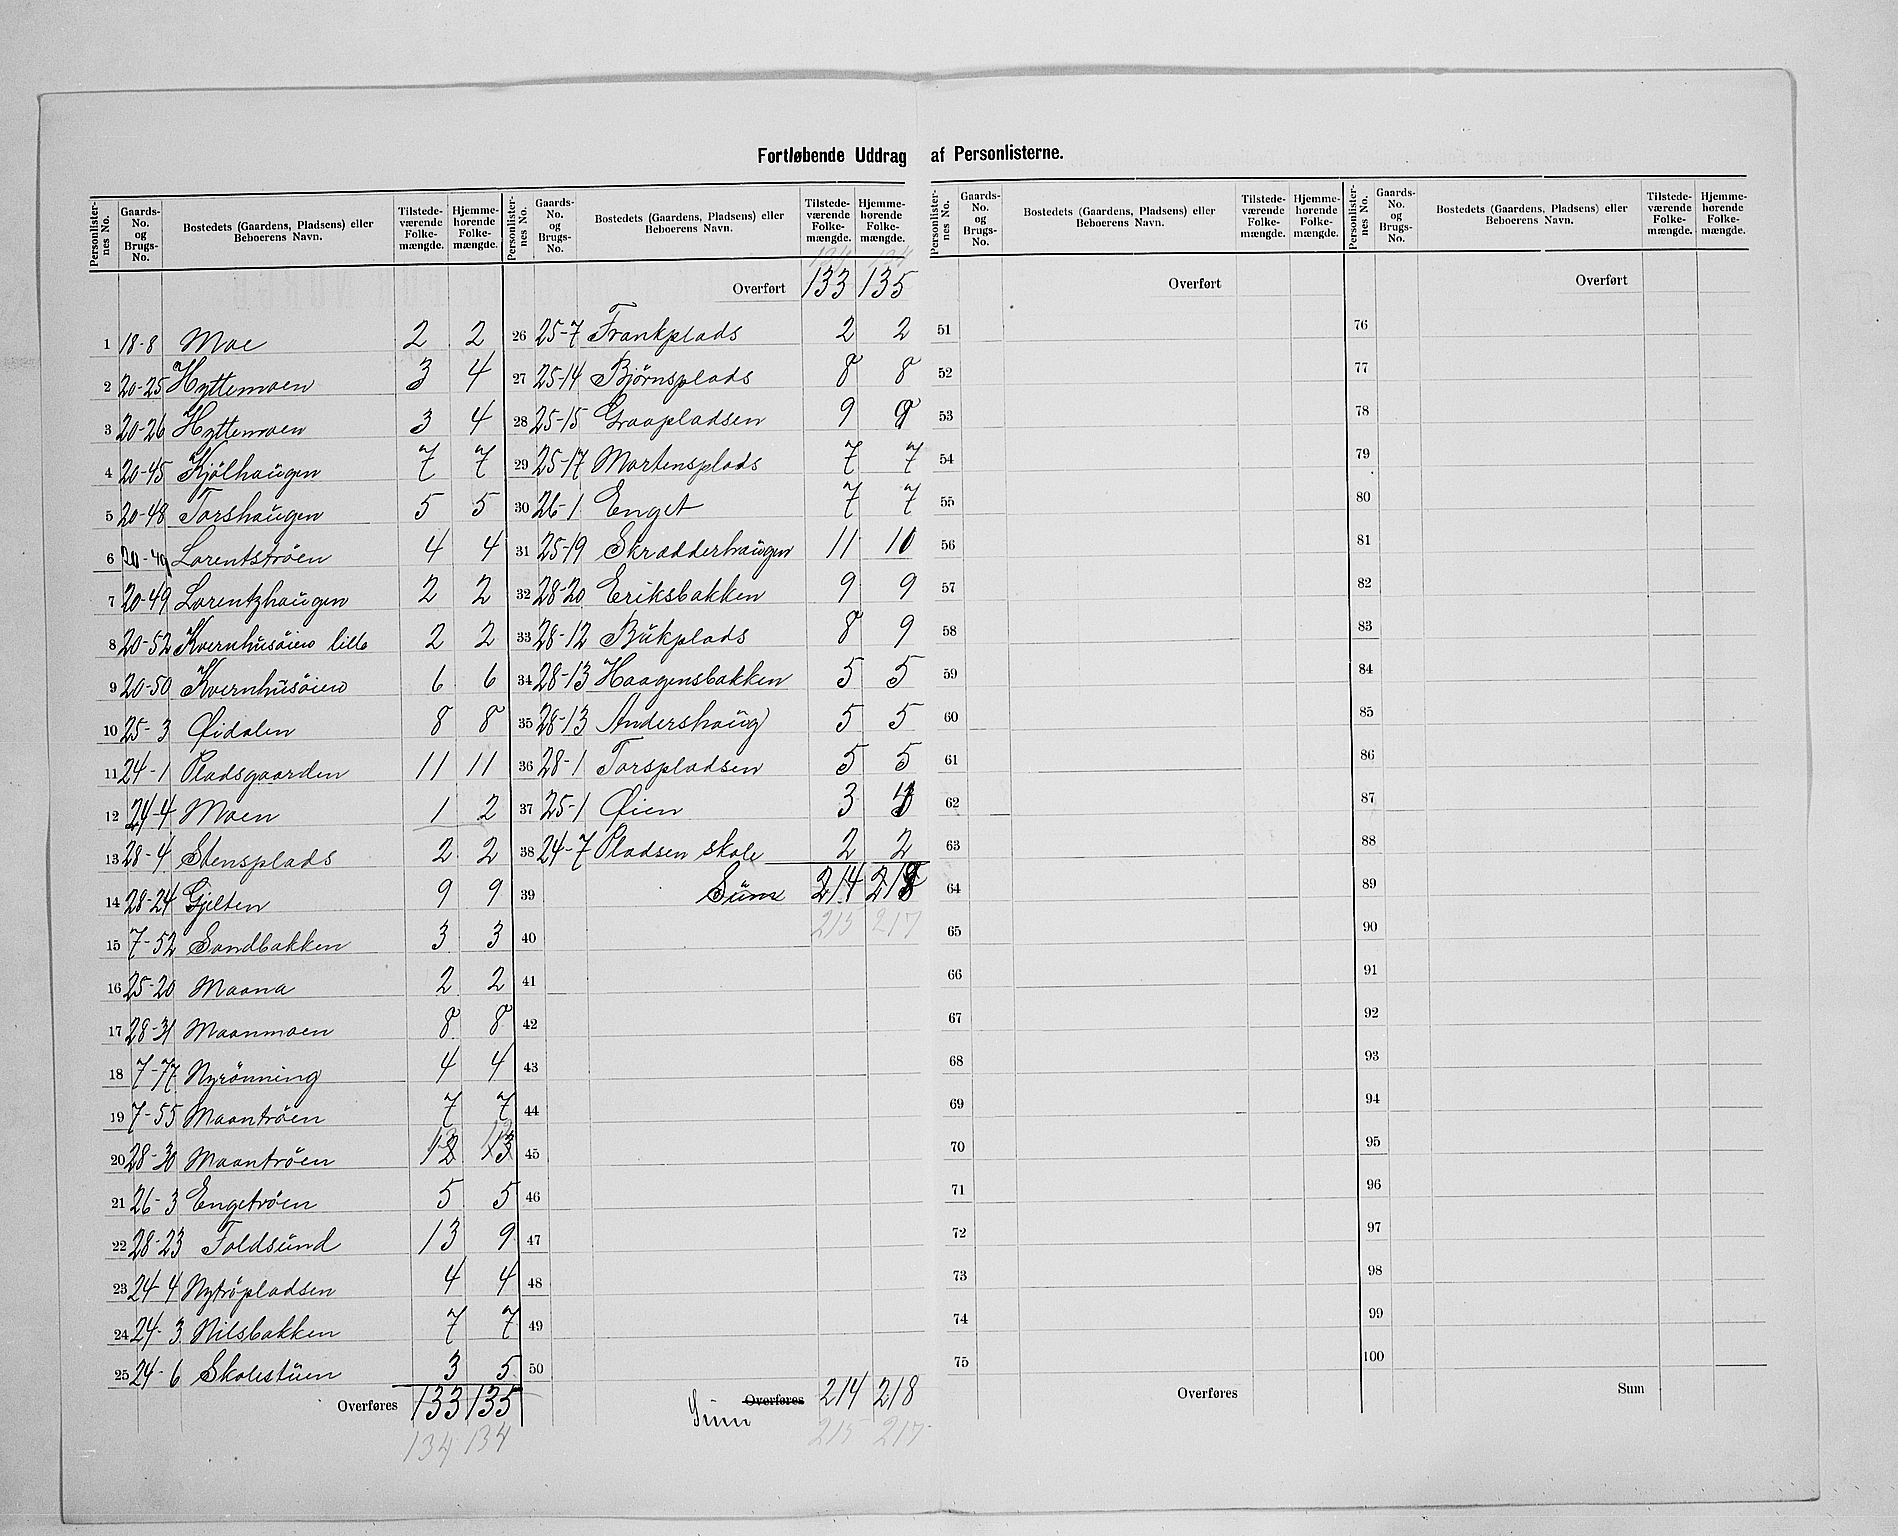 Fortløbende Uddrag af Personlisterne.
Personlisternes No. Gaards-No. og Brugs-No. Bostedets (Gaardens, Pladsens) eller Beboerens Navn. Tilstedeværende Folkemængde. Hjemmehørende Folkemængde.
1 18-8 Moe 2 2
2 20-25 Hyttemoen 3 4
3 20-26 Hyttemoen 3 4
4 20-45 Kjölhaugen 7 7
5 20-48 Torshaugen 5 5
6 20-49 Lorentströen 4 4
7 20-49 Lorentzhaugen 2 2
8 20-52 Kvernhusöien lille 2 2
9 20-50 Kvernhusöien 6 6
10 25-3 Øidalen 8 8
11 24-1 Pladsgaarden 11 11
12 24-4 Moen 1 2
13 28-4 Stensplads 2 2
14 28-24 Gjelten 9 9
15 7-52 Sandbakken 3 3
16 25-20 Maana 2 2
17 28-31 Maanmoen 8 8
18 7-77 Nyrönning 4 4
19 7-55 Maantröen 7 7
20 28-30 Maantröen 12 13
21 26-3 Engetröen 5 5
22 28-23 Foldsund 13 9
23 24-4 Nytröpladsen 4 4
24 24-3 Nilsbakken 7 7
25 24-6 Skolestuen 3 5
Overføres 133 135
134 134
Personlisternes No. Gaards-No. og Brugs-No. Bostedets (Gaardens, Pladsens) eller Beboerens Navn. Tilstedeværende Folkemængde. Hjemmehørende Folkemængde.
134 134
Overført 133 135
26 25-7 Frankplads 2 2
27 25-14 Bjørnsplads 8 8
28 25-15 Graapladsen 9 9
29 25-17 Mortensplads 7 7
30 26-1 Enget 7 7
31 25-19 Skradderhaugen 11 10
32 28-20 Eriksbakken 9 9
33 28-12 Bukplads 8 9
34 28-13 Haagensbakken 5 5
35 28-13 Andershaug 5 5
36 28-1 Torspladsen 5 5
37 25-1 Øien 3
38 24-7 Pladsen skole 2 2
39 Sum 214 218
215 217
40
41
42
43
44
45
46
47
48
49
50
Overføres 214 218
Sum
215 217
Personlisternes No. Gaards-No. og Brugs-No. Bostedets (Gaardens, Pladsens) eller Beboerens Navn. Tilstedeværende Folkemængde. Hjemmehørende Folkemængde.
Overført
51
52
53
54
55
56
57
58
59
60
61
62
63
64
65
66
67
68
69
70
71
72
73
74
75
Overføres
Personlisternes No. Gaards-No. og Brugs-No. Bostedets (Gaardens, Pladsens) eller Beboerens Navn. Tilstedeværende Folkemængde. Hjemmehørende Folkemængde.
Overført
76
77
78
79
80
81
82
83
84
85
86
87
88
89
90
91
92
93
94
95
96
97
98
99
100
Sum